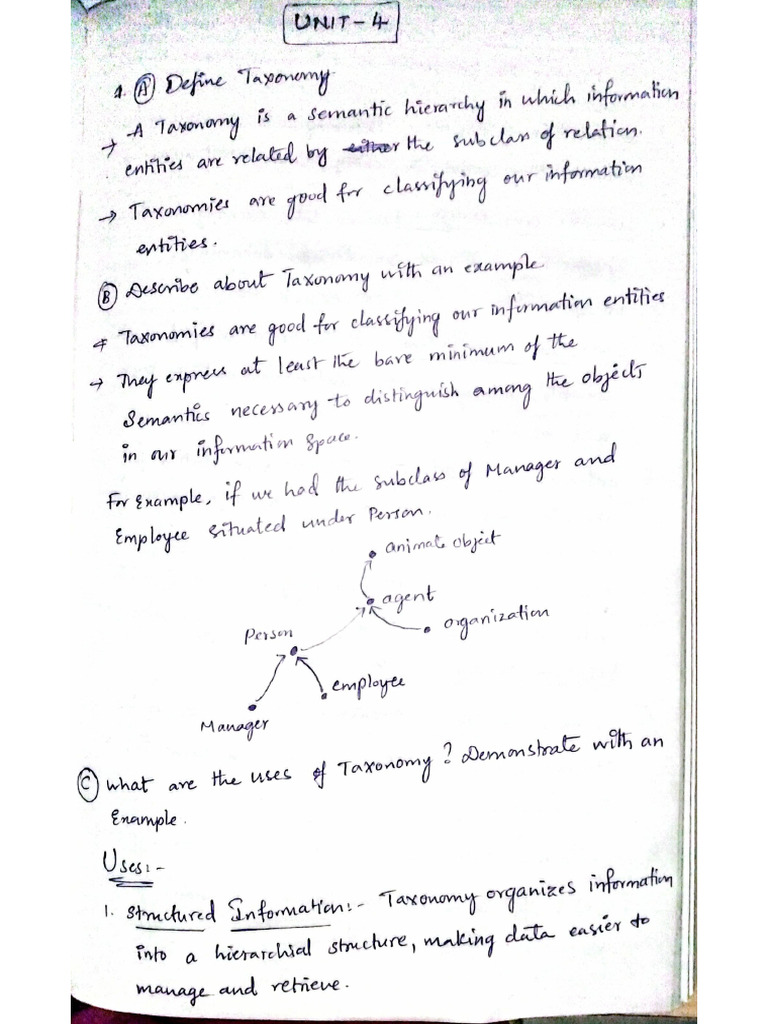 UNIT-4
1. (A) Define Taxonomy
→ A Taxonomy is a semantic hierarchy in which information
entities are related by the subclass of relation.
→ Taxonomies are good for classifying our information
entities.
(B) Describe about Taxonomy with an example
→ Taxonomies are good for classifying our information entities
→ They express at least the bare minimum of the
Semantics necessary to distinguish among the objects
in our information space.
For Example, if we had the subclass of Manager and
Employee situated under Person.
animate object
agent
organization
Person
employee
Manager
(C) What are the uses of Taxonomy? Demonstrate with an
Example.
Uses:-
1. Structured Information:- Taxonomy organizes information
into a hierarchial structure, making data easier to
manage and retrieve.